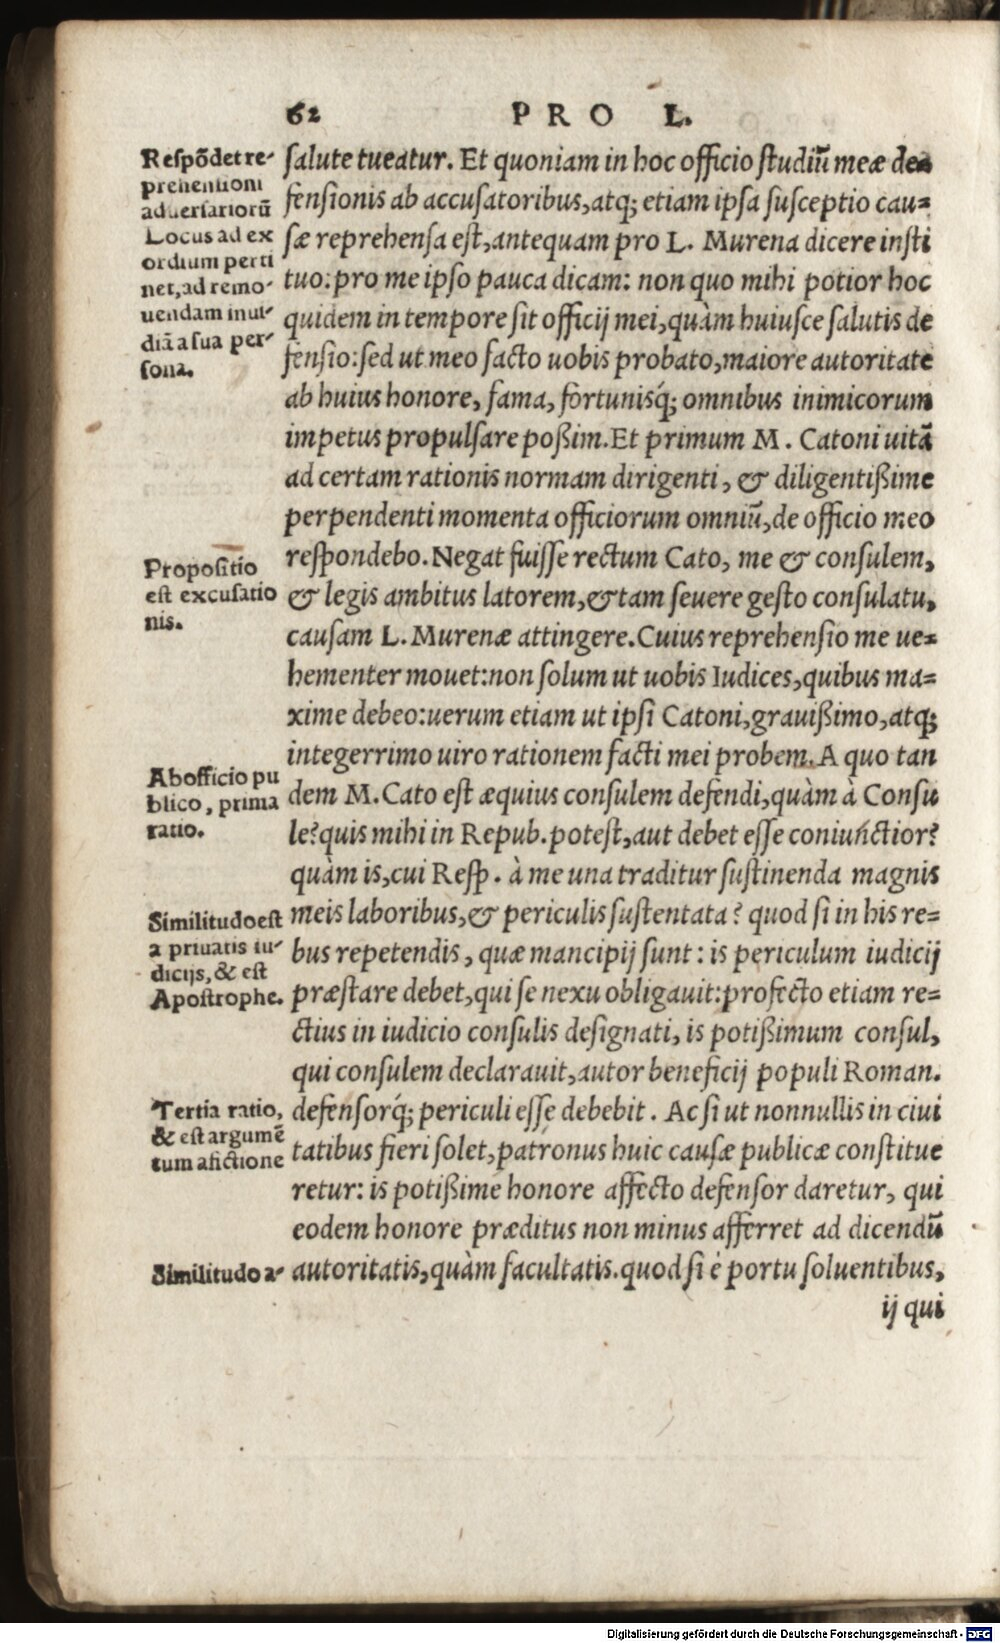 62 PRO L.
Respõdet re-
prehensioni
aduersariorũ
Locus ad ex
ordium perti
net, ad remo-
uendam inui-
diã a sua per-
sona.
salute tueatur. Et quoniam in hoc officio studiũ meæ de=
fensionis ab accusatoribus, atq; etiam ipsa susceptio cau=
sæ reprehensa est, antequam pro L. Murena dicere insti
tuo: pro me ipso pauca dicam: non quo mihi potior hoc
quidem in tempore sit officij mei, quàm huiusce salutis de
fensio: sed ut meo facto uobis probato, maiore autoritate
ab huius honore, fama, fortunisq́; omnibus inimicorum
impetus propulsare poßim. Et primum M. Catoni uitã
ad certam rationis normam dirigenti, & diligentißime
perpendenti momenta officiorum omniũ, de officio meo
respondebo. Negat fuisse rectum Cato, me & consulem,
& legis ambitus latorem, & tam seuere gesto consulatu,
causam L. Murenæ attingere. Cuius reprehensio me ue=
hementer mouet: non solum ut uobis Iudices, quibus ma=
xime debeo: uerum etiam ut ipsi Catoni, grauißimo, atq;
integerrimo uiro rationem facti mei probem. A quo tan
dem M. Cato est æquius consulem defendi, quàm à Consu
le? quis mihi in Repub. potest, aut debet esse coniunctior?
quàm is, cui Resp. à me una traditur sustinenda magnis
meis laboribus, & periculis sustentata? quod si in his re=
bus repetendis, quæ mancipij sunt: is periculum iudicij
præstare debet, qui se nexu obligauit: profecto etiam re=
ctius in iudicio consulis designati, is potißimum consul,
qui consulem declarauit, autor beneficij populi Roman.
defensorq́; periculi esse debebit. Ac si ut nonnullis in ciui
tatibus fieri solet, patronus huic causæ publicæ constitue
retur: is potißime honore affecto defensor daretur, qui
eodem honore præditus non minus afferret ad dicendũ
autoritatis, quàm facultatis. quod si è portu soluentibus,
ij qui
Propositio
est excusatio
nis.
Ab officio pu
blico, prima
ratio.
Similitudo est
a priuatis iu-
dicijs, & est
Apostrophe.
Tertia ratio,
& est argumẽ
tum a fictione
Similitudo a-
Digitalisierung gefördert durch die Deutsche Forschungsgemeinschaft - DFG